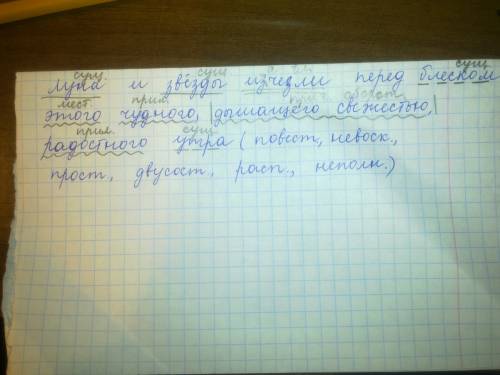 сущ. сущ. сущ.
Луна и звёзды исчезли перед блеском
мест. прил. прич. оборот
этого чудного, |дышащего свежестью,|
прил. сущ.
радостного утра ( повест., невоск.,
прост., двусост., расп., неполн.)